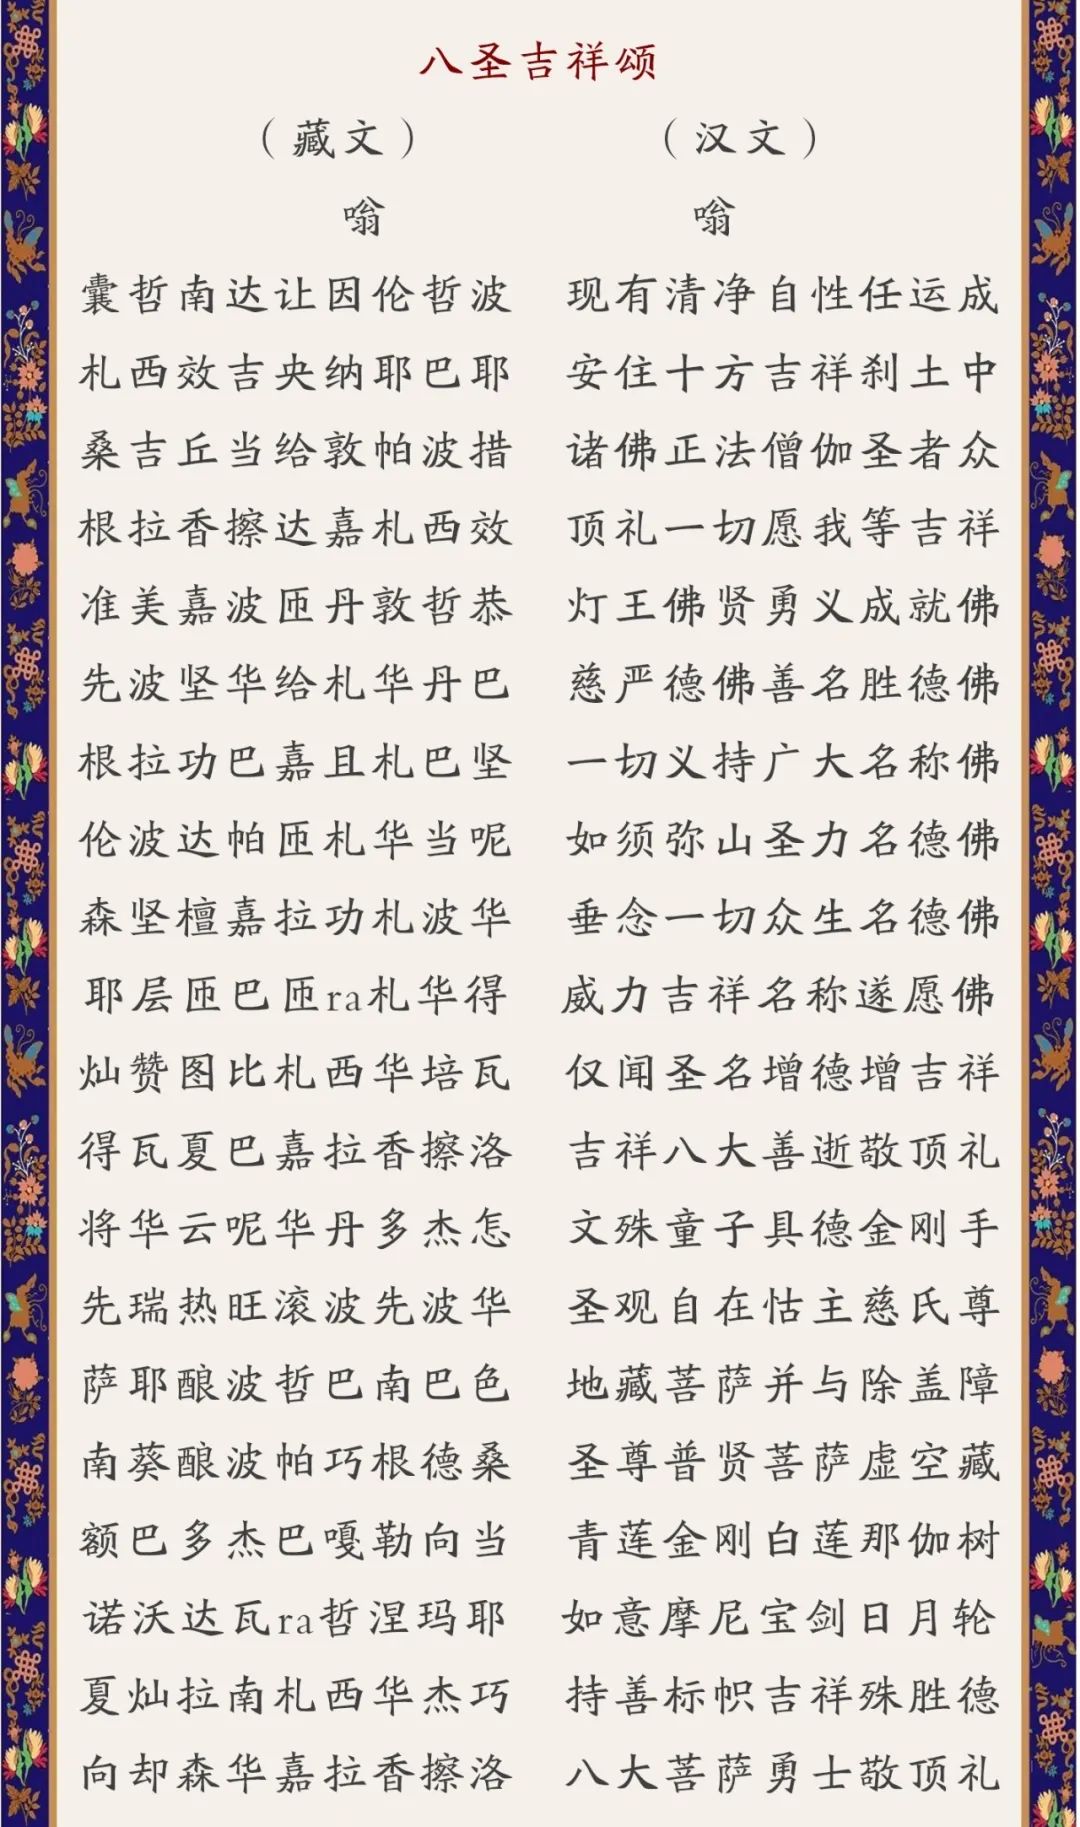 八圣吉祥颂
（藏文） （汉文）
嗡 嗡
囊哲南达让因伦哲波 现有清净自性任运成
札西效吉央纳耶巴耶 安住十方吉祥刹土中
桑吉丘当给敦帕波措 诸佛正法僧伽圣者众
根拉香擦达嘉札西效 顶礼一切愿我等吉祥
准美嘉波匝丹敦哲恭 灯王佛贤勇义成就佛
先波坚华给札华丹巴 慈严德佛善名胜德佛
根拉功巴嘉且札巴坚 一切义持广大名称佛
伦波达帕匝札华当呢 如须弥山圣力名德佛
森坚檀嘉拉功札波华 垂念一切众生名德佛
耶层匝巴匝ra札华得 威力吉祥名称遂愿佛
灿赞图比札西华培瓦 仅闻圣名增德增吉祥
得瓦夏巴嘉拉香擦洛 吉祥八大善逝敬顶礼
将华云呢华丹多杰怎 文殊童子具德金刚手
先瑞热旺滚波先波华 圣观自在怙主慈氏尊
萨耶酿波哲巴南巴色 地藏菩萨并与除盖障
南葵酿波帕巧根德桑 圣尊普贤菩萨虚空藏
额巴多杰巴嘎勒向当 青莲金刚白莲那伽树
诺沃达瓦ra哲涅玛耶 如意摩尼宝剑日月轮
夏灿拉南札西华杰巧 持善标帜吉祥殊胜德
向却森华嘉拉香擦洛 八大菩萨勇士敬顶礼